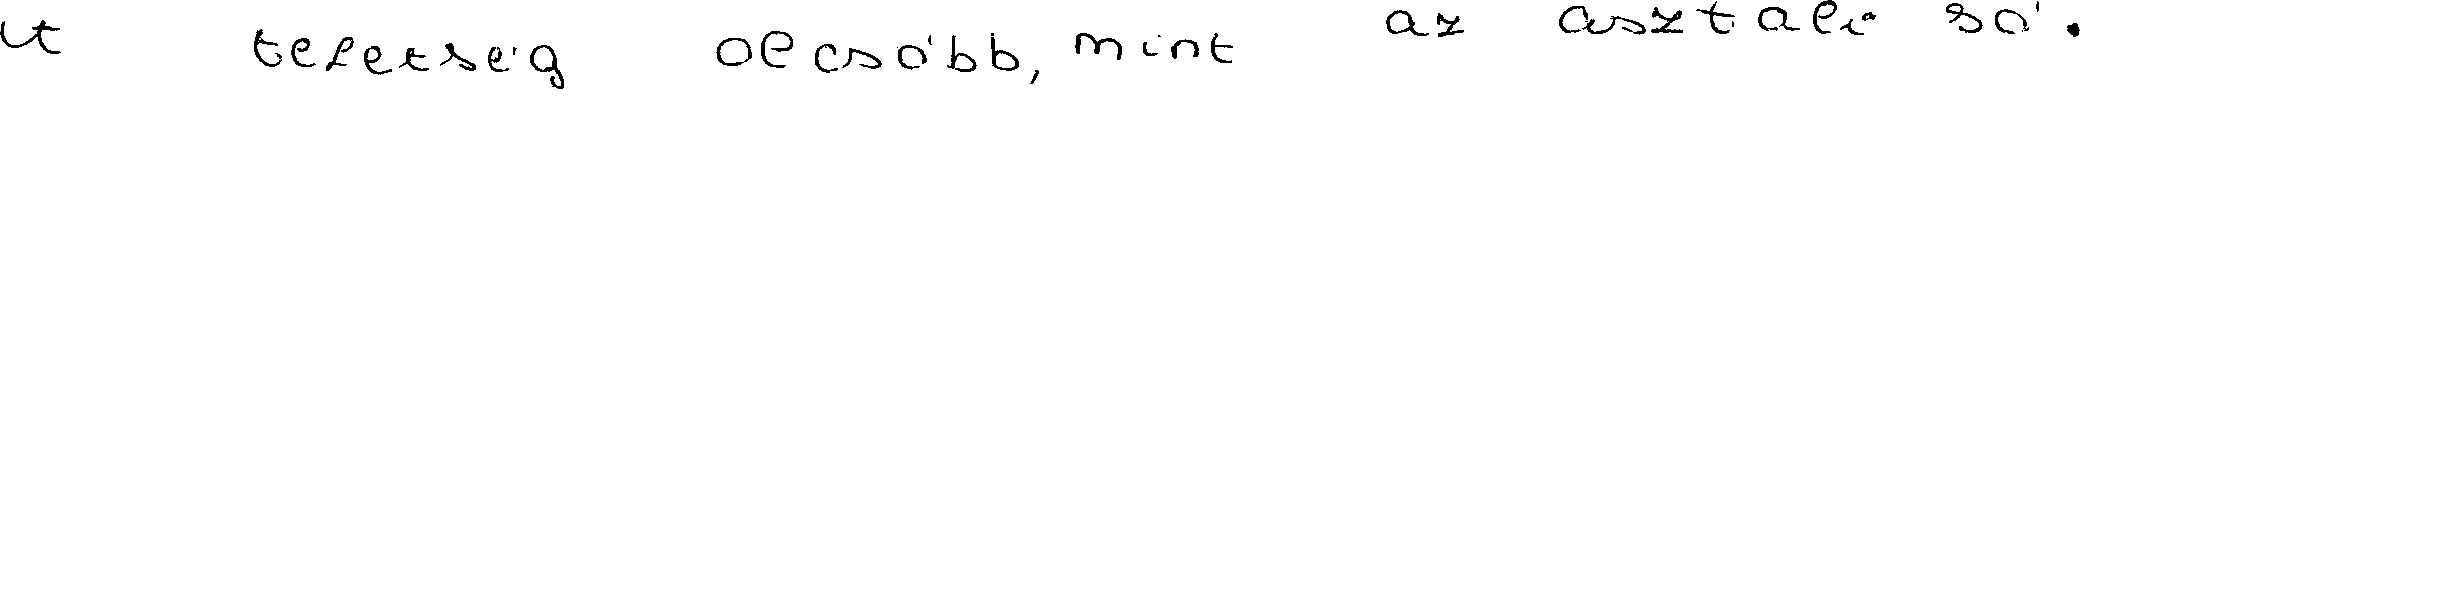 tehetség olcsóbb, mint az asztali só.